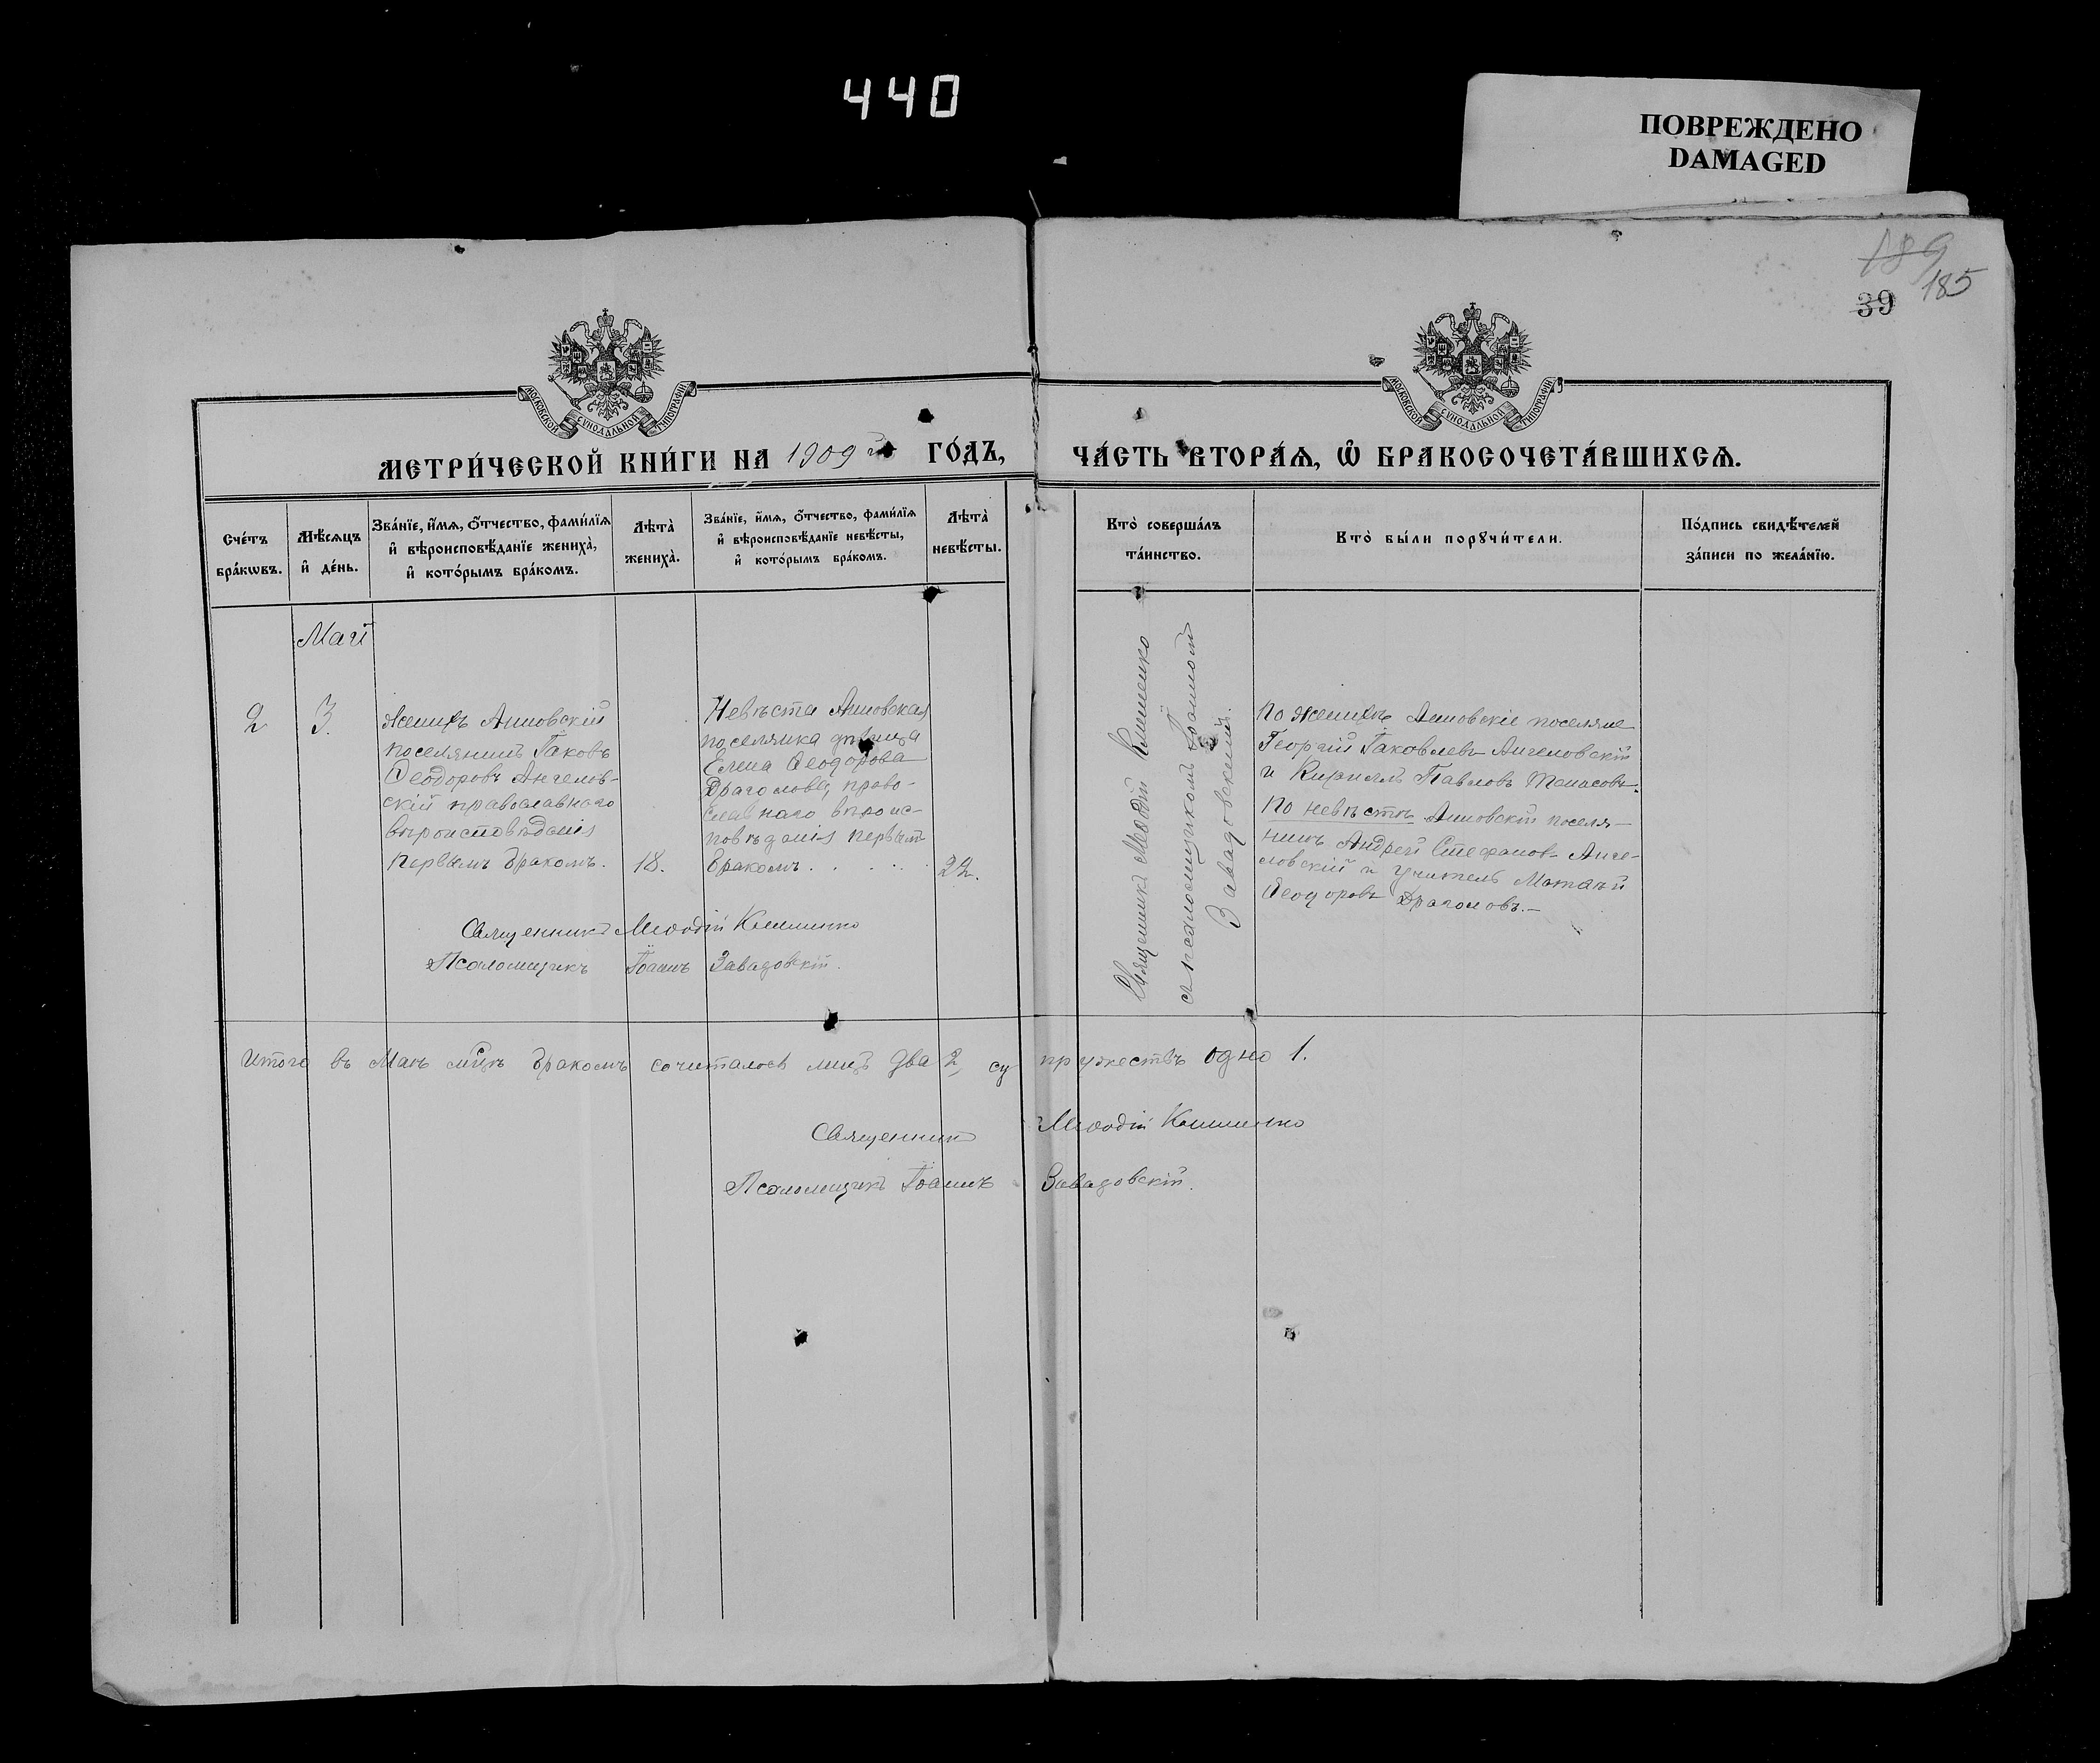 440
ПОВРЕЖДЕНО
DAMAGED
189
185
39
МОСКОВСКОЙ СУНОДАЛЬНОЙ ТИПОГРАФІИ
МОСКОВСКОЙ СУНОДАЛЬНОЙ ТИПОГРАФІИ
МЕТРИ́ЧЕСКОЙ КНИ́ГИ НА 1909й ГО́ДЪ,
ЧА́СТЬ ВТОРА́Ѧ, Ѡ҆ БРАКОСОЧЕТА́ВШИХСѦ.
Сче́тъ бра́кѡвъ.
Мѣ́сѧцъ и҆ де́нь.
Зва́нїе, и҆́мѧ, ѻ҆́тчество, фами́лїѧ и҆ вѣроисповѣ́данїе жениха̀, и҆ кото́рымъ бра́комъ.
Лѣта̀ жениха̀.
Зва́нїе, и҆́мѧ, ѻ҆́тчество, фами́лїѧ и҆ вѣроисповѣ́данїе невѣ́сты, и҆ кото́рымъ бра́комъ.
Лѣта̀ невѣ́сты.
Кто̀ соверша́лъ та́инство.
Кто̀ бы́ли порꙋчи́тели.
По́дпись свидѣ́телей за́писи по жела́нїю.
Май
2
3.
Женихъ Анновскій
поселянинъ Іаковъ
Ѳеодоровъ Ангелов-
скій православнаго
вѣроисповѣданія
первымъ бракомъ.
18.
Невѣста Анновская
поселянка дѣвица
Елена Ѳеодорова
Драгомова, право-
славнаго вѣроис-
повѣданія первымъ
бракомъ . . . . .
22.
Священникъ Меѳодій Клименко
съ псаломщикомъ Іоанномъ
Завадовскимъ.
По женихѣ Анновскіе поселяне
Георгій Іаковлевъ Ангеловскій
и Кириллъ Павловъ Танасовъ.
По невѣстѣ Анновскій поселя-
нинъ Андрей Стефановъ Анге-
ловскій и учитель Матѳѣй
Ѳеодоровъ Драгомовъ.—
Священникъ Меѳодій Клименко
Псаломщикъ Іоаннъ Завадовскій.
Итого въ Маѣ мѣсцѣ бракомъ сочиталось лицъ два 2, су пружествъ одно 1.
Священникъ Меѳодій Клименко
Псаломщикъ Іоаннъ Завадовскій.